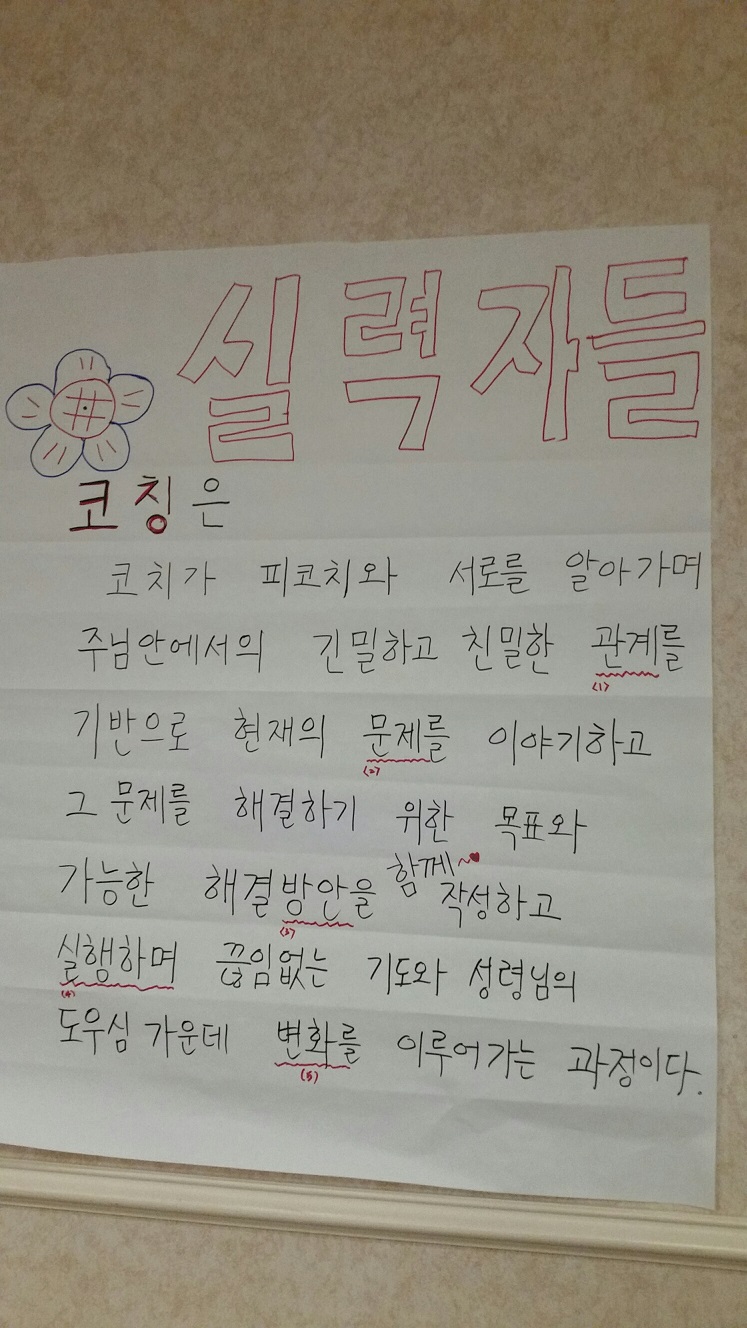 실력자들
코칭은
코치가 피코치와 서로를 알아가며
주님안에서의 긴밀하고 친밀한 관계를
(1)
기반으로 현재의 문제를 이야기하고
(2)
그 문제를 해결하기 위한 목표와
함께~
가능한 해결방안을 작성하고
(3)
실행하며 끊임없는 기도와 성령님의
(4)
도우심 가운데 변화를 이루어가는 과정이다.
(5)